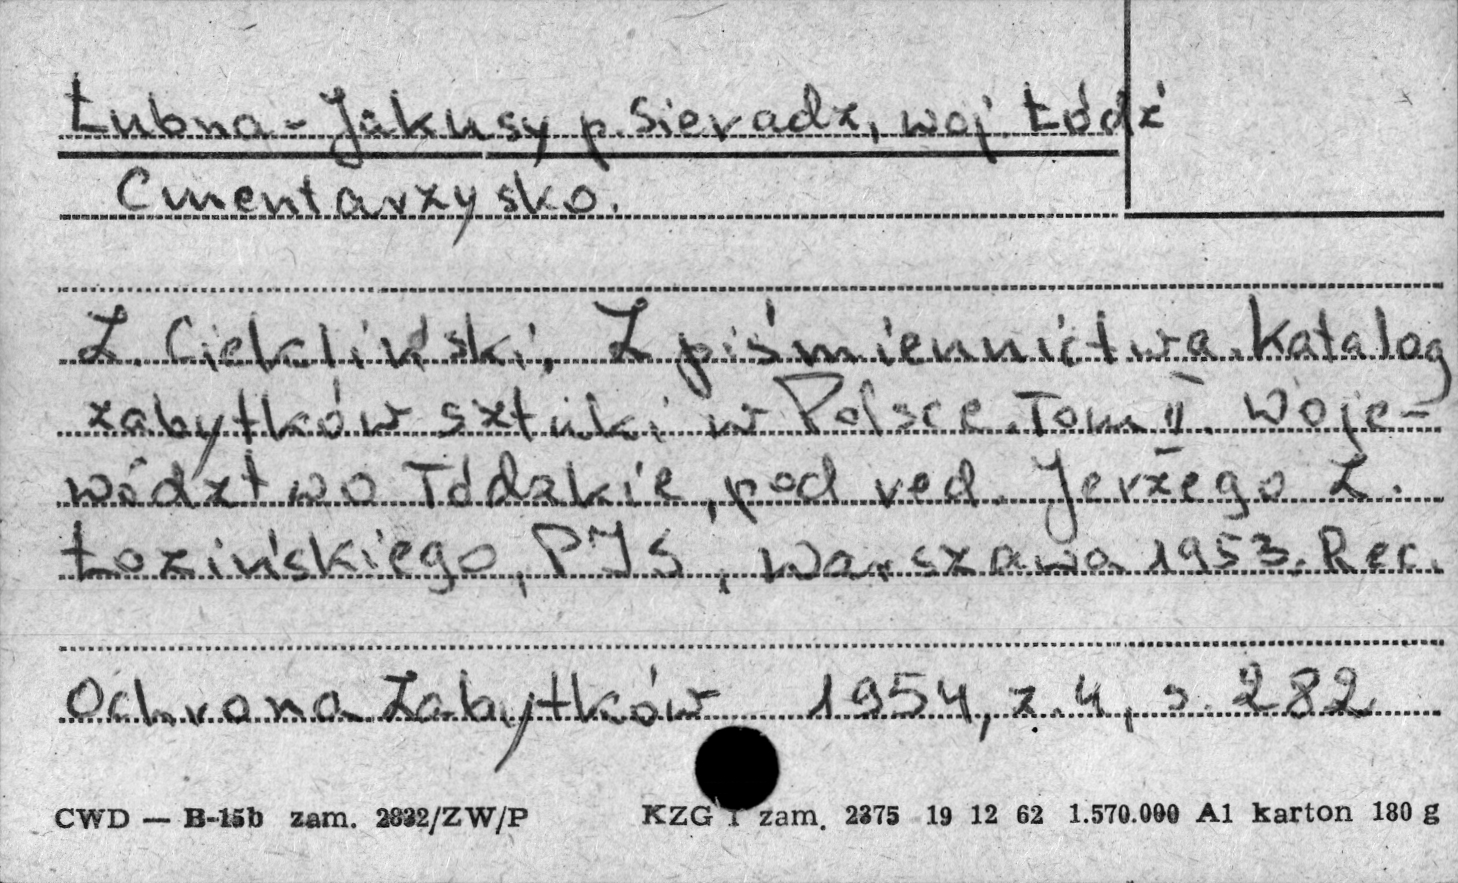 Łubna-Jakusy p. Sieradz, woj. Łódź
Cmentarzysko.
Z. Ciekliński, Z piśmiennictwa. Katalog
zabytków sztuki w Polsce. Tom II. Woje-
wództwo Łódzkie, pod red. Jerzego Z.
Łozińskiego, PIS, Warszawa 1953. Rec.
Ochrona Zabytków 1954, z. 4, s. 282
CWD — B-15b zam. 2832/ZW/P KZG 1 zam. 2375 19 12 62 1.570.000 A1 karton 180 g